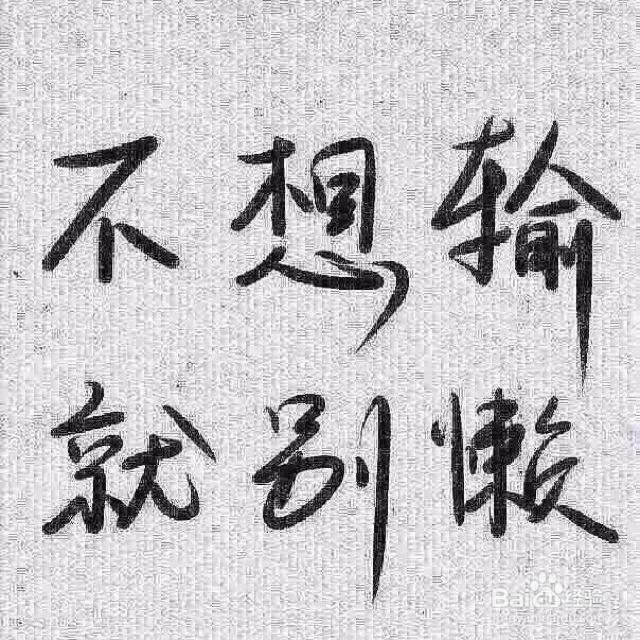 不想输
就别懒
Baidu经验